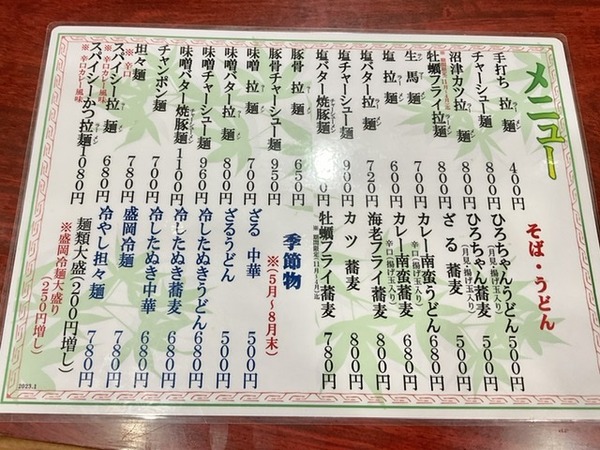 メニュー
手打ち拉麺 400円
チャーシュー麺
沼津カツ拉麺
牡蠣フライ拉麺
生馬麺 700円
塩拉麺 600円
塩バター拉麺 720円
塩チャーシュー麺 900円
塩バター焼豚麺
豚骨拉麺 650円
豚骨チャーシュー麺 950円
味噌拉麺 700円
味噌バター拉麺 800円
味噌チャーシュー麺 960円
味噌バター焼豚麺 1100円
チャンポン麺 700円
坦々麺 780円
※辛口
スパイシー拉麺 680円
※辛口カレー風味
スパイシーかつ拉麺 1080円
※辛口カレー風味
そば・うどん
ひろちゃんうどん 500円
(月見・揚げ玉入り)
ひろちゃん蕎麦 500円
(月見・揚げ玉入り)
ざる蕎麦 500円
カレー南蛮うどん 680円
辛口(揚げ玉入り)
カレー南蛮蕎麦 680円
辛口(揚げ玉入り)
海老フライ蕎麦 880円
カツ蕎麦 880円
牡蠣フライ蕎麦 780円
季節物
※(5月〜8月末)
ざる中華 500円
ざるうどん 500円
冷したぬきうどん 680円
冷したぬき蕎麦 680円
冷したぬき中華 680円
盛岡冷麺 780円
冷やし坦々麺 780円
麺類大盛(200円増し)
※盛岡冷麺大盛り(250円増し)
2023.1